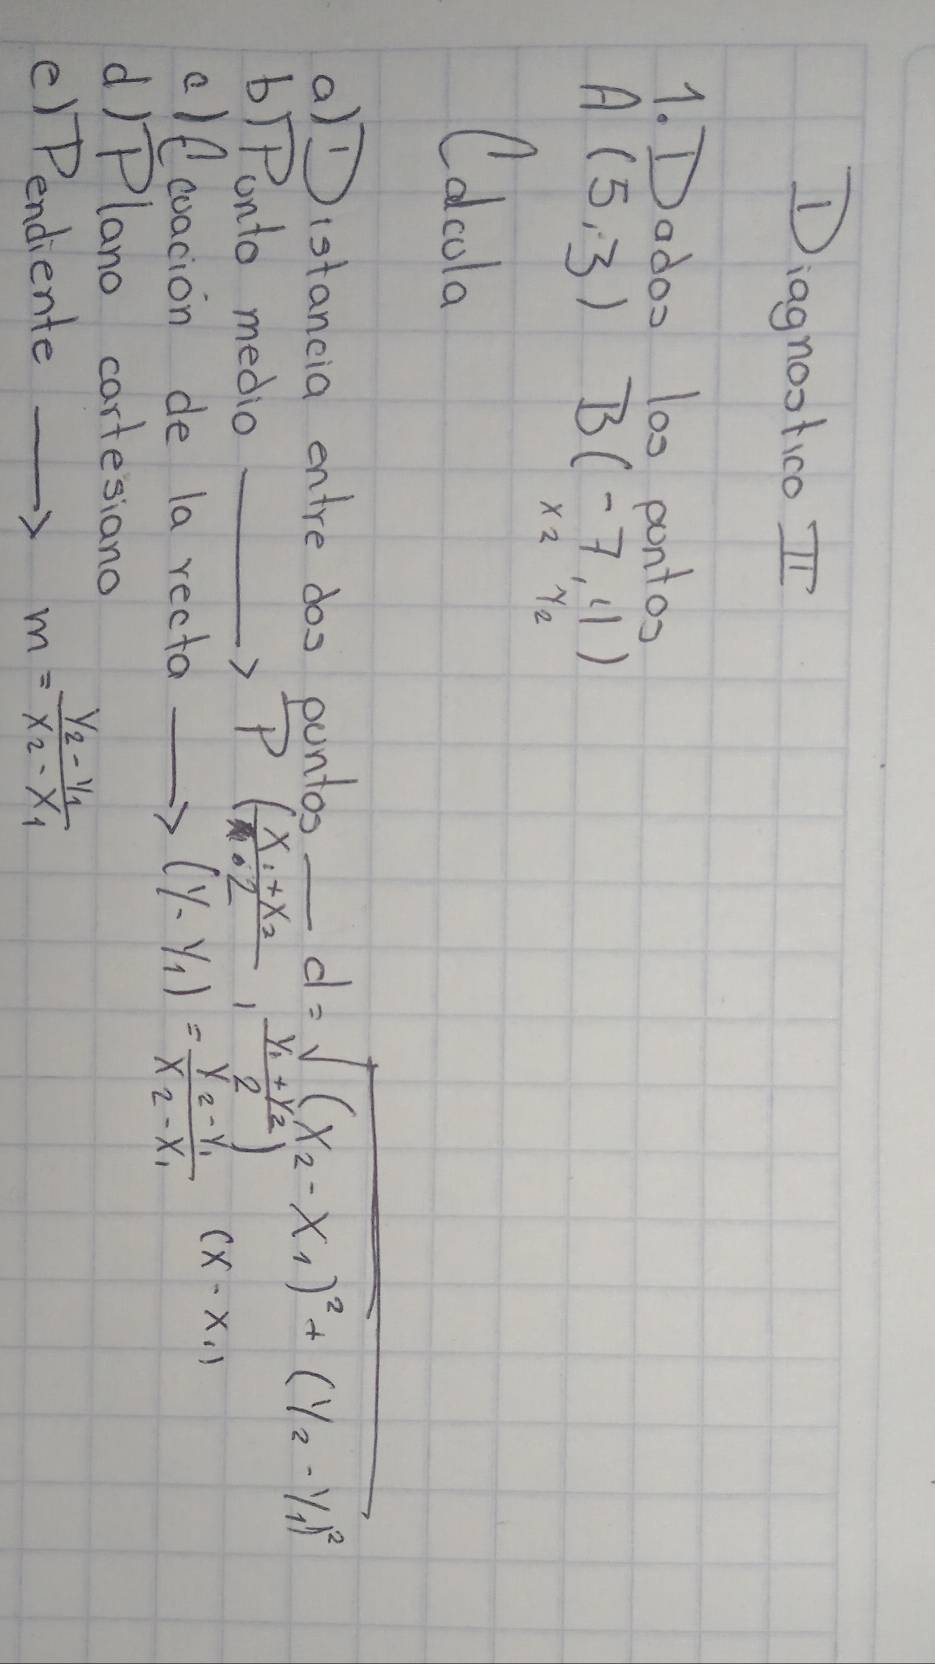 Diagnostico II
1. Dados los puntos
A (5,3) B(-7,11)
x₂ y₂
Calcula
a) Distancia entre dos puntos — d = √(x₂ - x₁)² + (y₂ - y₁)²
b) Punto medio → P (x₁ + x₂ / 2 , y₁ + y₂ / 2)
c) Ecuación de la recta → (y - y₁) = y₂ - y₁ / x₂ - x₁ (x - x₁)
d) Plano cartesiano
e) Pendiente → m = y₂ - y₁ / x₂ - x₁